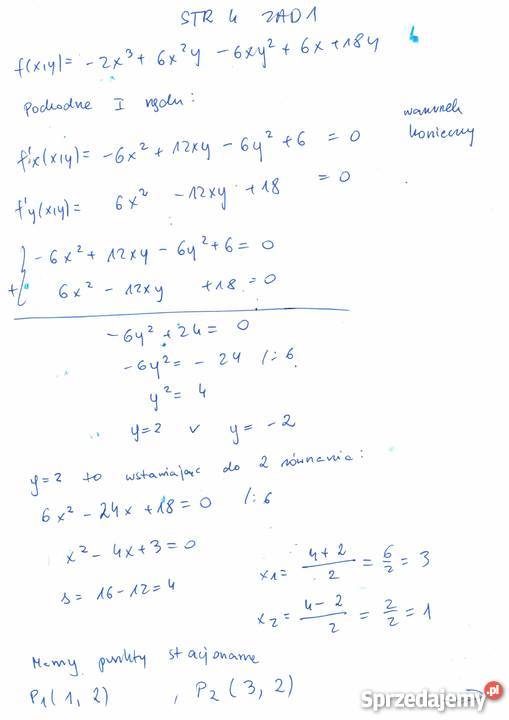 STR 4 ZAD1
f(x,y)= -2x³ + 6x²y - 6xy² + 6x + 18y
Pochodne I rzędu:
warunek
konieczny
f'x(x,y)= -6x² + 12xy - 6y² + 6 = 0
f'y(x,y)= 6x² - 12xy + 18 = 0
-6x² + 12xy - 6y² + 6 = 0
+ 6x² - 12xy + 18 = 0
-6y² + 24 = 0
-6y² = -24 /:6
y² = 4
y=2 v y = -2
y=2 to wstawiając do 2 równania:
6x² - 24x + 18 = 0 /:6
x² - 4x + 3 = 0
s = 16-12 = 4
x1 = (4+2)/2 = 6/2 = 3
x2 = (4-2)/2 = 2/2 = 1
Mamy punkty stacjonarne
P1(1, 2) , P2(3, 2)
Sprzedajemy.pl